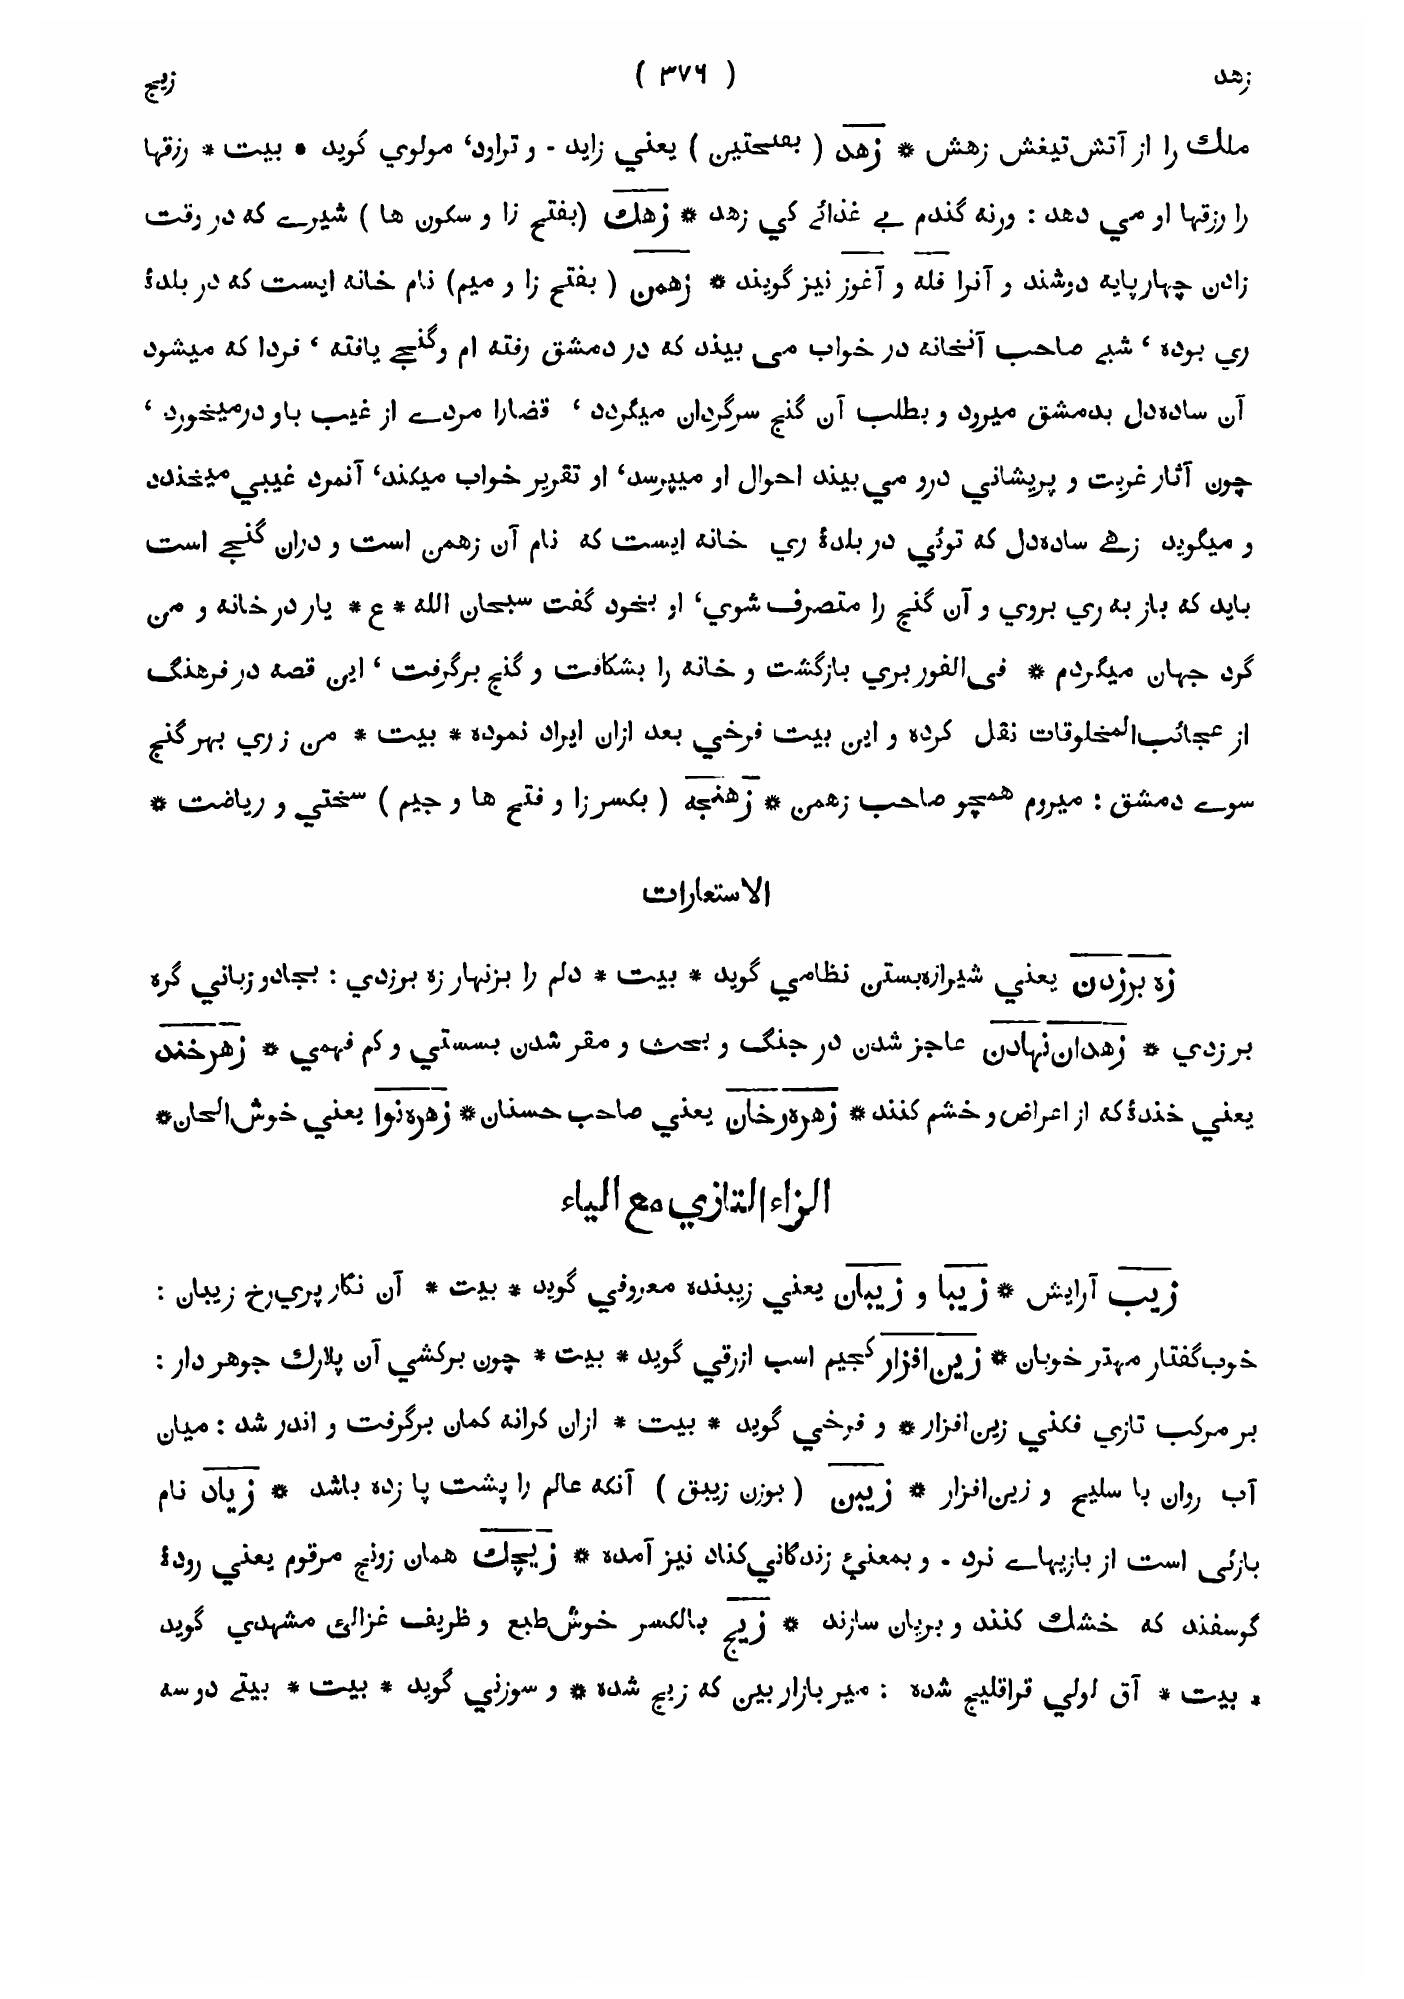 زهد ( ۳۷۶ ) زیج
ملك را از آتش تیغش زهش * زهد ( بفتحتین ) یعني زاید - و تراود، مولوي گوید * بیت * رزقها
را رزقها او مي دهد : ورنه گندم بے غذائے کي زهد * زهك (بفتح زا و سکون ها ) شیرے که در وقت
زادن چهارپایه دوشند و آنرا فله و آغوز نیز گویند * زهمن ( بفتح زا و میم) نام خانه ایست که در بلدۀ
ري بوده ، شبے صاحب آنخانه در خواب می بیند که در دمشق رفته ام و گنجے یافته ، فردا که میشود
آن ساده‌دل بدمشق میرود و بطلب آن گنج سرگردان میگردد ، قضارا مردے از غیب باو درمیخورد ،
چون آثار غربت و پریشاني درو مي بیند احوال او میپرسد، او تقریر خواب میکند، آنمرد غیبي میخندد
و میگوید زهے ساده‌دل که توئي در بلدۀ ري خانه ایست که نام آن زهمن است و دران گنجے است
باید که باز به ري بروي و آن گنج را متصرف شوي، او بخود گفت سبحان الله * ع * یار در خانه و من
گرد جهان میگردم * فی الفور بري بازگشت و خانه را بشکافت و گنج برگرفت ، این قصه در فرهنگ
از عجائب‌المخلوقات نقل کرده و این بیت فرخي بعد ازان ایراد نموده * بیت * من ز ري بهر گنج
سوے دمشق : میروم همچو صاحب زهمن * زهنجه ( بکسر زا و فتح ها و جیم ) سختي و ریاضت *
الاستعارات
زه برزدن یعني شیرازه‌بستن نظامي گوید * بیت * دلم را بزنهار زه برزدي : بجادو زباني گره
بر زدي * زهدان‌نهادن عاجز شدن در جنگ و بحث و مقر شدن بسستي و کم فهمي * زهرخند
یعني خندۀ که از اعراض و خشم کنند * زهره‌رخان یعني صاحب حسنان * زهره‌نوا یعني خوش‌الحان *
الزاء التازي مع الیاء
زیب آرایش * زیبا و زیبان یعني زیبنده معروفي گوید * بیت * آن نگار پري‌رخ زیبان :
خوب‌گفتار مهتر خوبان * زین‌افزار کجیم اسب ازرقي گوید * بیت * چون برکشي آن پلارك جوهر دار :
بر مرکب تازي فکني زین‌افزار * و فرخي گوید * بیت * ازان کرانه کمان برگرفت و اندر شد : میان
آب روان با سلیح و زین‌افزار * زیبن ( بوزن زیبق ) آنکه عالم را پشت پا زده باشد * زیاد نام
بازئی است از بازیهاے نرد - و بمعنیٔ زندگاني کناد نیز آمده * زیچك همان زونج مرقوم یعني رودۀ
گوسفند که خشك کنند و بریان سازند * زیج بالکسر خوش‌طبع و ظریف غزالئ مشهدي گوید
* بیت * آق لولي قراقلیج شده : میر بازار بین که زیج شده * و سوزني گوید * بیت * بیتے دو سه